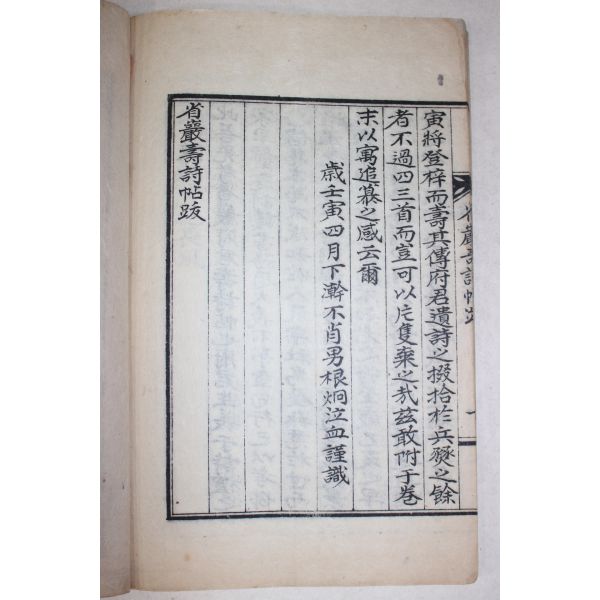 省巖壽詩帖跋
寅將登梓而壽其傳府君遺詩之掇拾於兵燹之餘
者不過四三首而豈可以片隻棄之哉玆敢附于卷
末以寓追慕之感云爾
歲壬寅四月下澣不肖男根炯泣血謹識
省巖壽詩帖跋